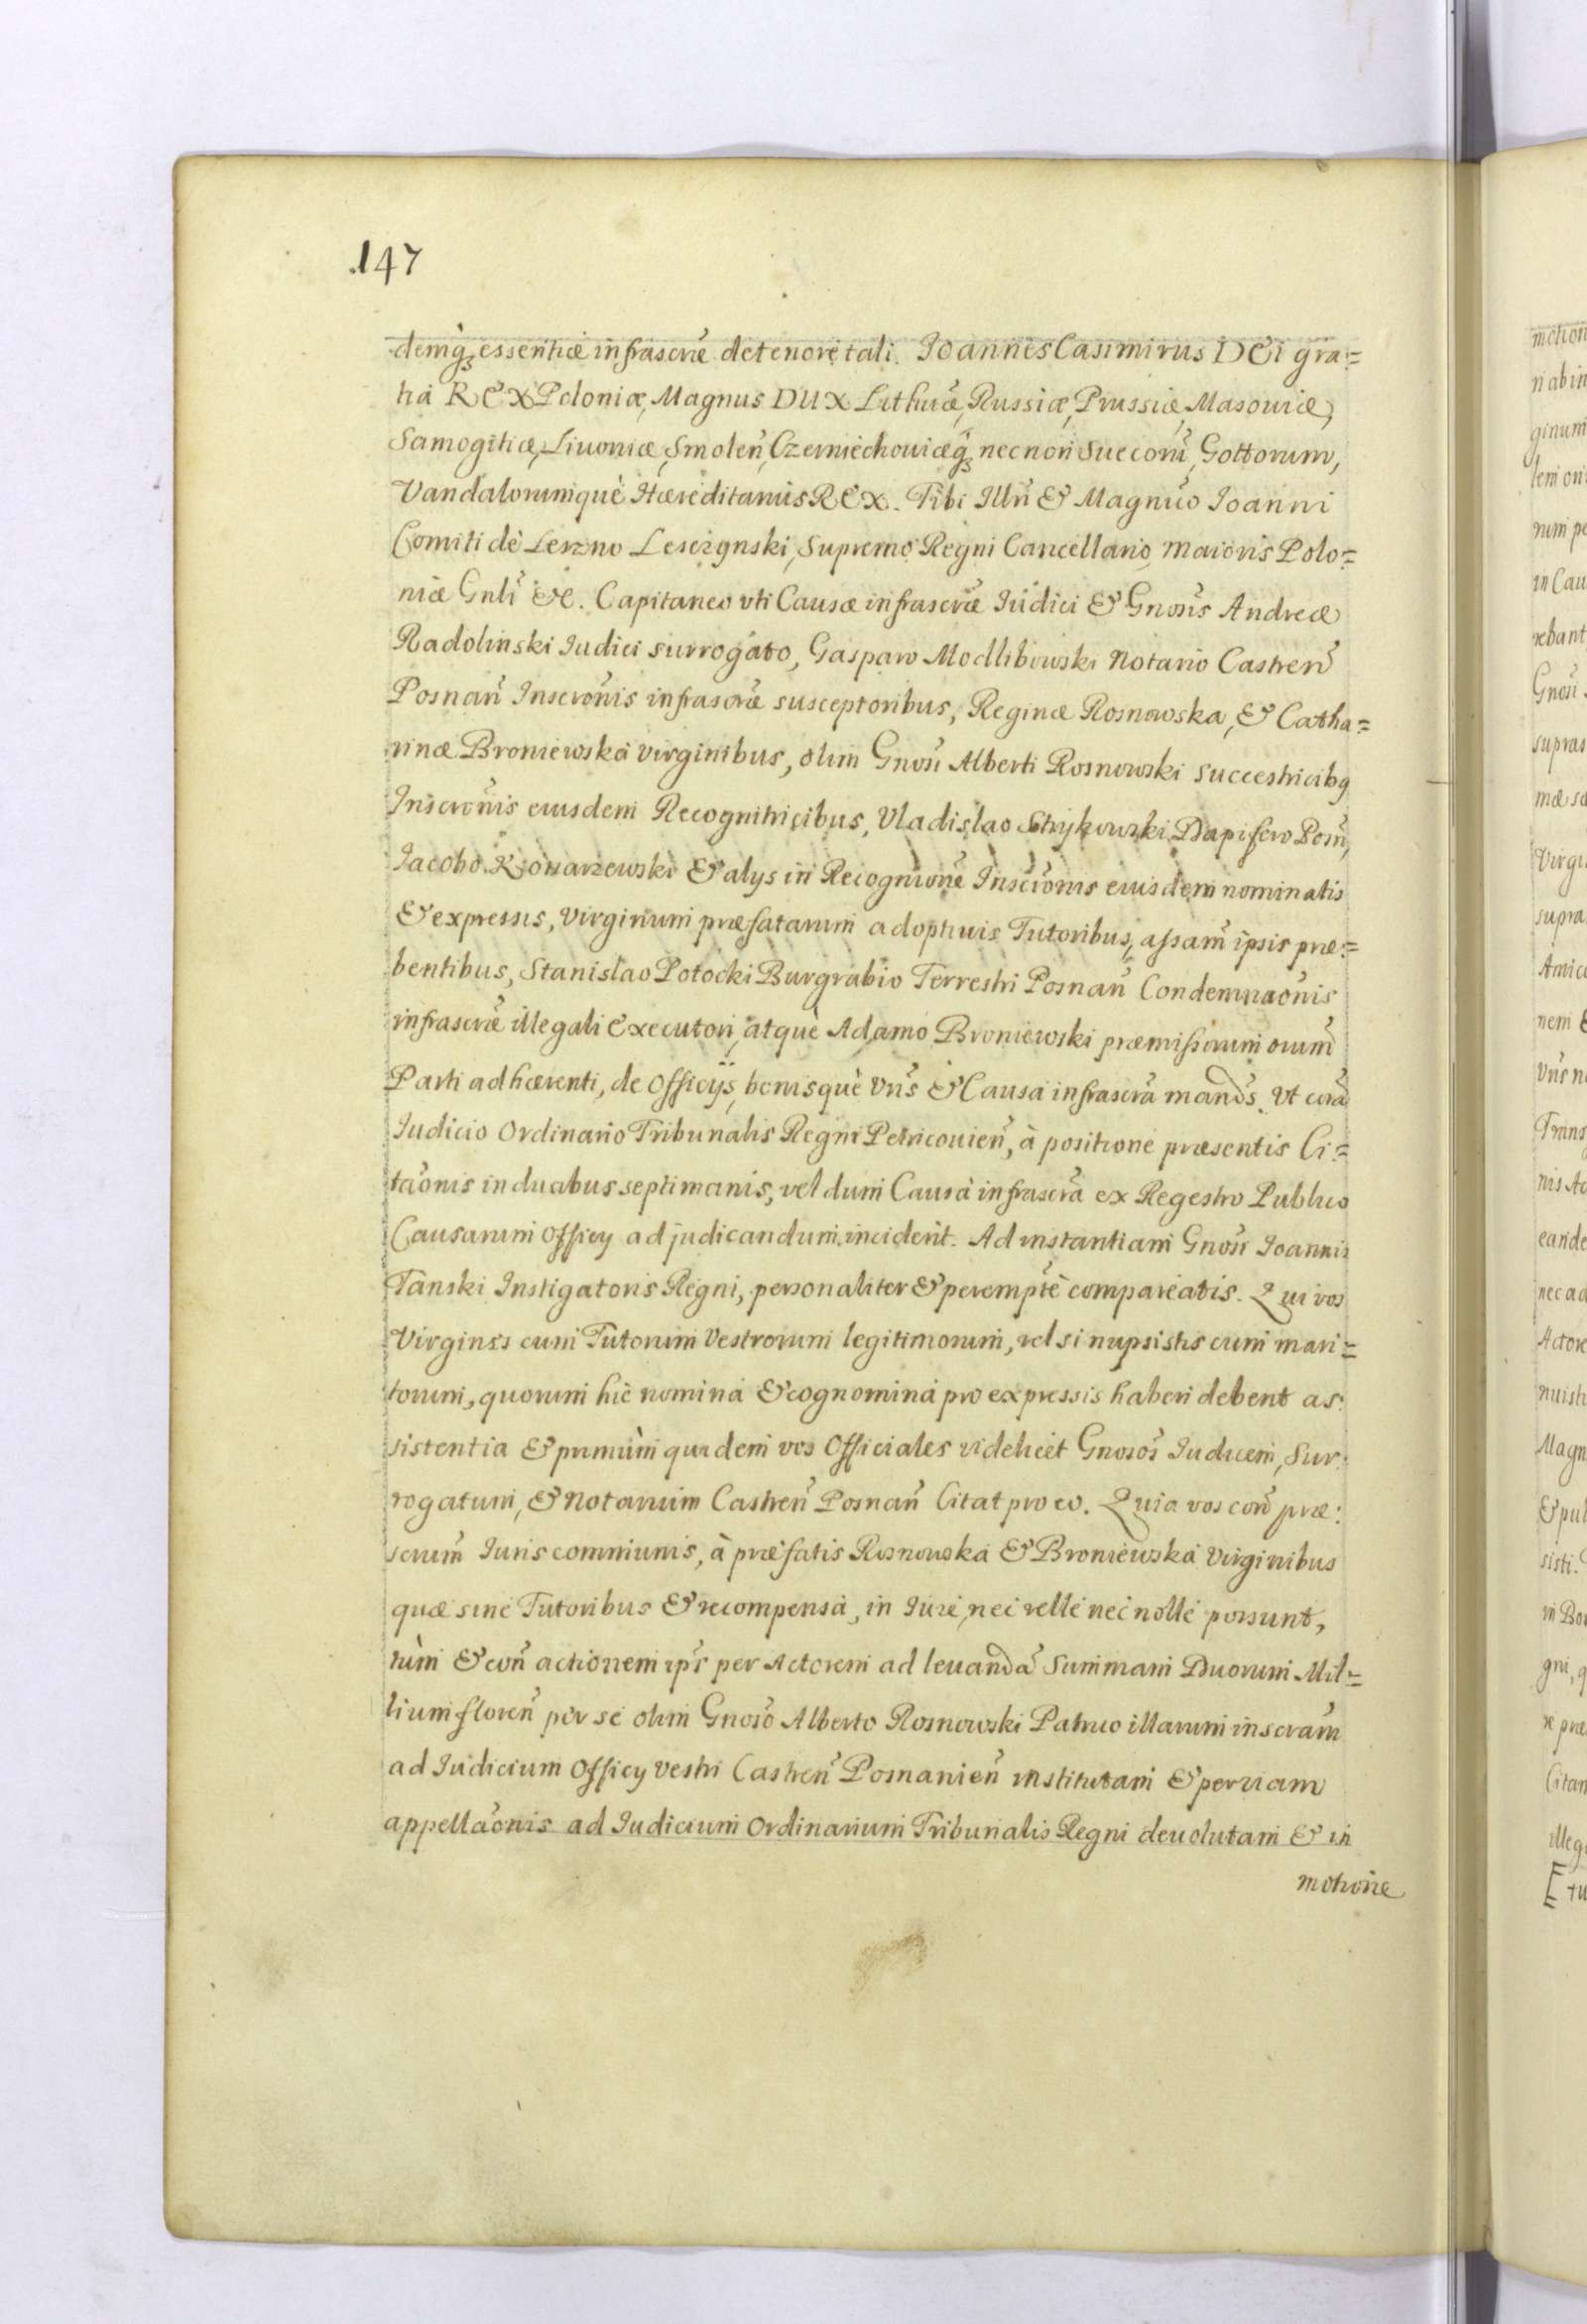 147
demq̃ essentiæ infrascræ de tenore tali. Joannes Casimirus DEi gra=
tia REX Poloniæ, Magnus DUX Lithuæ, Russiæ, Prussiæ, Masouiæ,
Samogitiæ, Liuoniæ, Smolen̄, Czerniechouiæq̃ necnon Suecorũ, Gottorum,
Vandalorumquè Hæreditarius REX. Tibi Illrĩ & Magnĩco Joanni
Comiti dè Leszno Lesczynski, Supremo Regni Cancellario, maioris Polo=
niæ Gnlĩ &c. Capitaneo vti Causæ infrascræ Iudici & Gnosis Andreæ
Radolinski Iudici surrogato, Gasparo Modlibowski Notario Castren̄
Posnan̄ Inscronis infrascræ susceptoribus, Reginæ Rosnowska, & Catha=
rinæ Broniewska virginibus, olim Gnosi Alberti Rosnowski succestricibq
Inscronis eiusdem Recognitricibus, Vladislao Strykowski Dapifero Posn̄,
Iacobo Konarzewski & alys in Recognitione Inscronis eiusdem nominatis
& expressis, virginum præfatarum adoptiuis Tutoribus, assam̄ ipsis præ=
bentibus, Stanislao Potocki Burgrabio Terrestri Posnan̄ Condemnaonis
infrascræ illegali Executori, atquè Adamo Broniewski præmissorum oium̄
Parti adhærenti, de Officijs, bonisquè vris̄ & Causa infrascra mands̄. Vt corã
Iudicio Ordinario Tribunalis Regni Petricouien̄, à positione præsentis Ci=
taonis in duabus septimanis, vel dum Causa infrascra ex Regestro Publico
Causarum Officy adjudicandum inciderit. Ad instantiam Gnosi Joannis
Tanski Instigatoris Regni, personaliter & peremptè compareatis. Qui vos
Virgines cum Tutorum Vestrorum legitimorum, vel si nupsistis cum mari=
torum, quorum hic nomina & cognomina pro expressis haberi debent as:
sistentia & primùm quidem vos Officiales videlicet Gnosos Iudicem, Sur:
rogatum, & Notarium Castren̄ Posnan̄ Citat pro eo. Quia vos con̄ præ:
scrum̄ Iuris communis, à præfatis Rosnowska & Broniewska Virginibus
quæ sine Tutoribus & recompensa, in Iure, nec velle nec nolle possunt,
tùm & con̄ actionem ips̄ per Actorem ad leuandã Summam Duorum Mil=
lium floren̄ per se olim Gnoso Alberto Rosnowski Patruo illarum inscram̄
ad Iudicium Officy vestri Castren̄ Posnanien̄ institutam & per viam
appellaonis ad Iudicium Ordinarium Tribunalis Regni deuolutam & in
motione